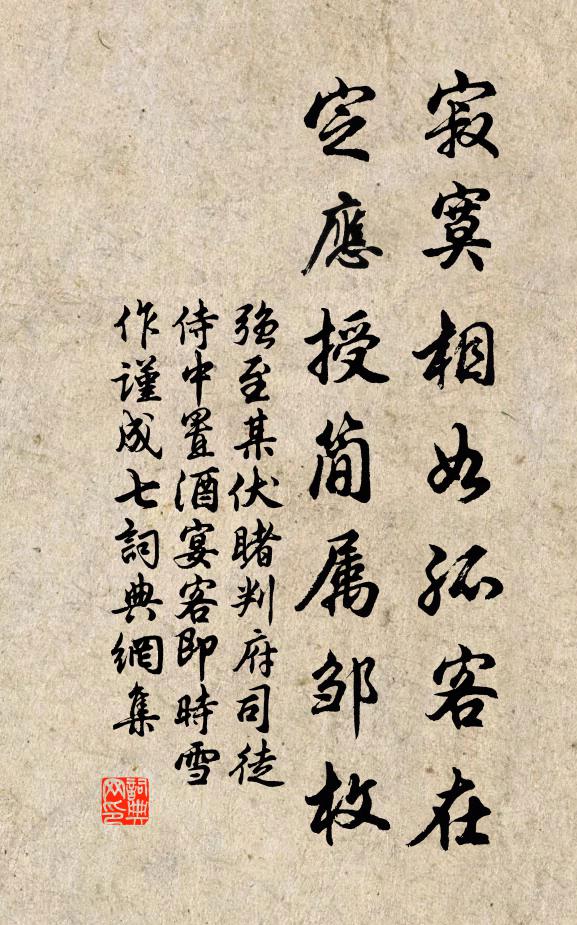 寂寞相如孤客在
定應授简属邹枚
強至某伏睹判府司徒
侍中置酒宴客即時雪
作謹成七詞典網集
詞典网印